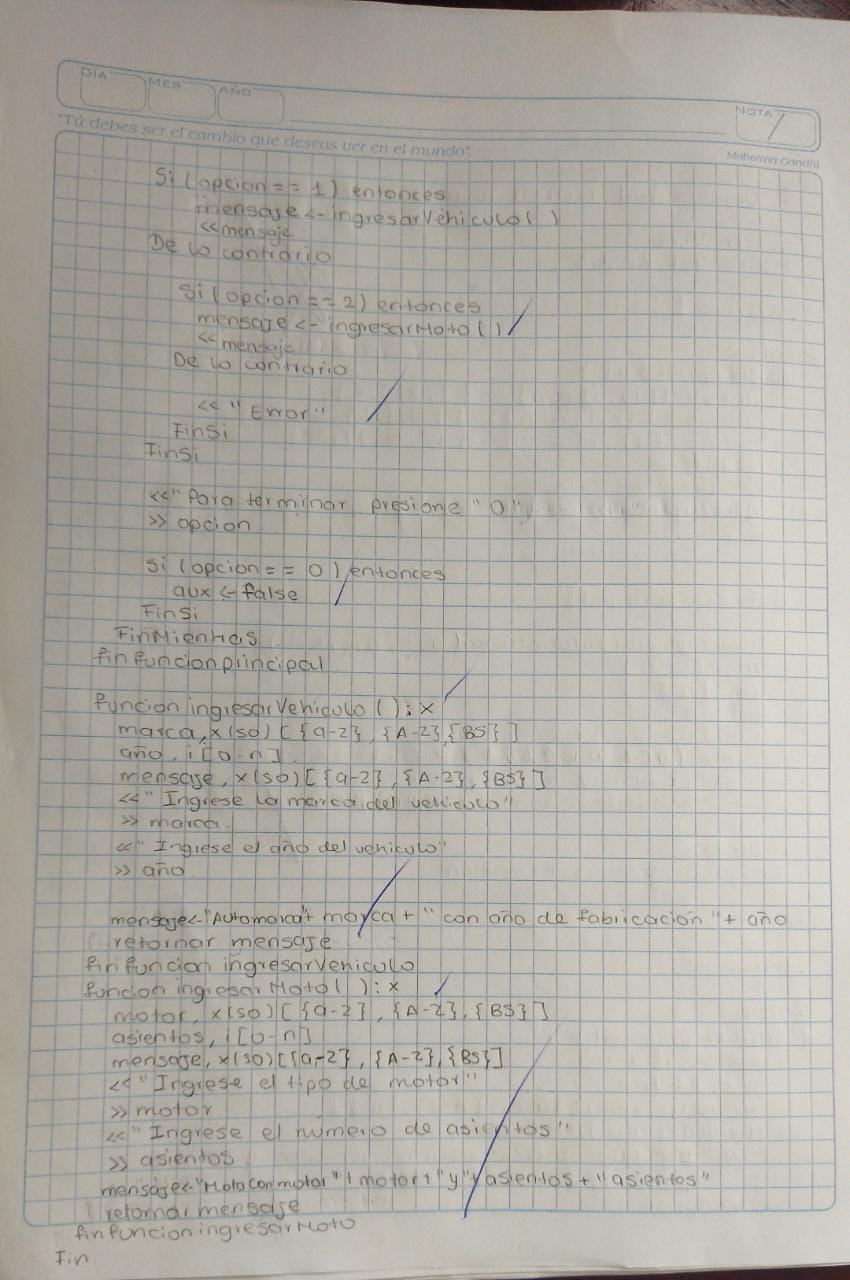 DÍA
MES
AÑO
NOTA
"Tú debes ser el cambio que deseas ver en el mundo".
Mahatma Gandhi
Si (opcion == 1) entonces
mensaje <- ingresarVehiculo ( )
<< mensaje
De lo contrario
Si (opcion == 2) entonces
mensaje <- ingresarMoto ( )
<< mensaje
De lo contrario
<< "Error"
FinSi
FinSi
<< "Para terminar presione "0"
>> opcion
Si (opcion == 0) entonces
aux <- false
FinSi
FinMientras
fin funcion principal
funcion ingresarVehiculo ( ): x
marca, x(50) [ {a-z}, {A-Z} {BS} ]
año, i [0-n]
mensaje, x(50) [ {a-z}, {A-Z}, {BS} ]
<< "Ingrese la marca del vehiculo"
>> marca
<< "Ingrese el año del vehiculo"
>> año
mensaje <- "Auto marca" + marca + "con año de fabricacion" + año
retornar mensaje
fin funcion ingresarVehiculo
funcion ingresarMoto ( ): x
motor, x(50) [ {a-z}, {A-Z}, {BS} ]
asientos, i [0-n]
mensaje, x(50) [ {a-z}, {A-Z}, {BS} ]
<< "Ingrese el tipo de motor"
>> motor
<< "Ingrese el numero de asientos"
>> asientos
mensaje <- "Moto con motor" + motor + "y" + asientos + "asientos"
retornar mensaje
fin funcion ingresarMoto
Fin